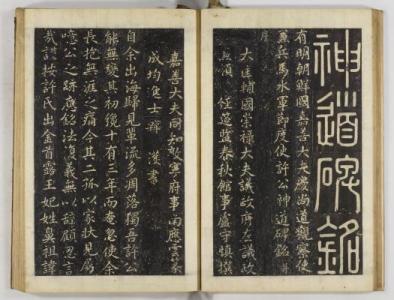 神道碑銘
有明朝鮮國嘉善大夫慶尚道觀察使
兼兵馬水軍節度使許公神道碑銘并
序
大匡輔國崇祿大夫議政府左議政
兼領 經筵監春秋館事盧守慎撰
嘉善大夫同知敦寧府事南應雲篆
成均進士韓 濩書
自余出海歸見輩流多凋落獨吾許公
能無變其初後十有三年而奄忽使余
長抱無涯之痛今其二孤以家狀見屬
噫公之跡應銘法復義無以辭顧忍言
哉謹按許氏出金首露王妃姓鼻祖諱